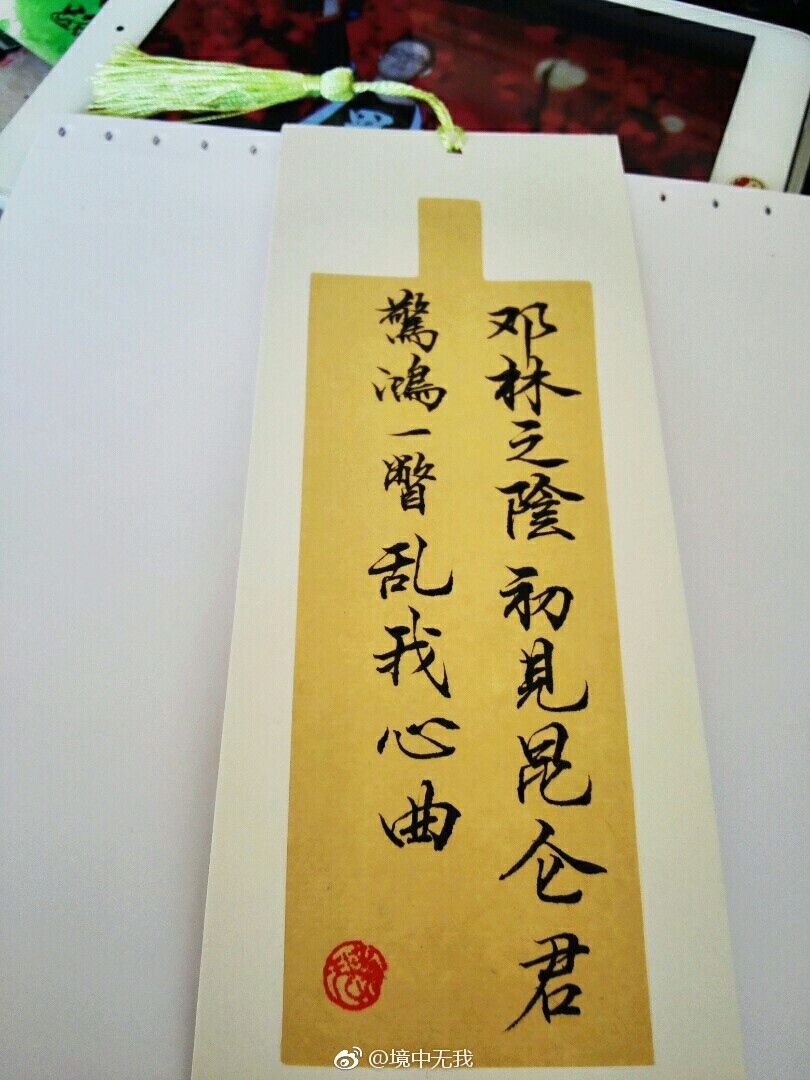 邓林之陰 初見昆仑君
驚鴻一瞥 乱我心曲
@境中无我